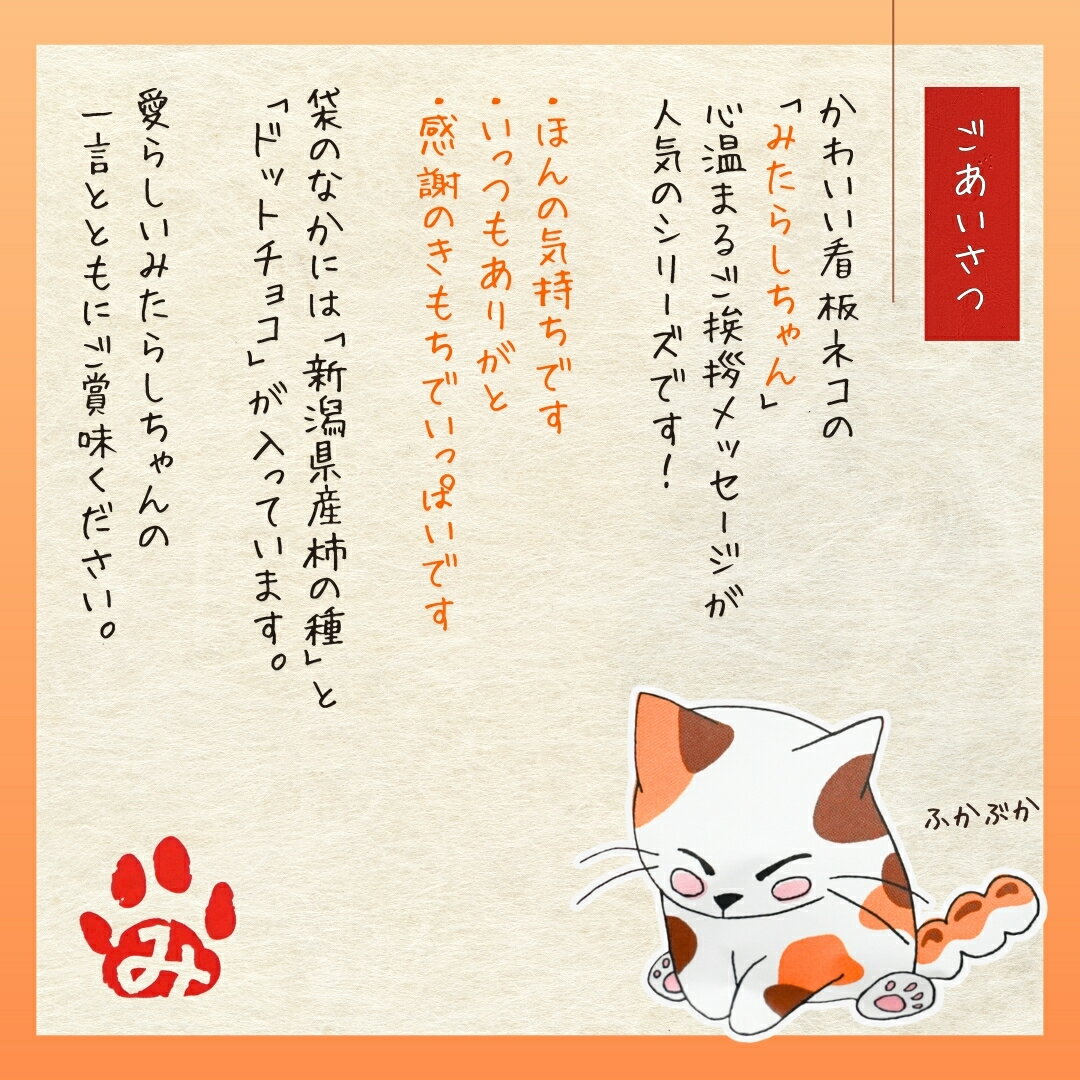 ごあいさつ
かわいい看板ネコの
「みたらしちゃん」
心温まるご挨拶メッセージが
人気のシリーズです！
・ほんの気持ちです
・いつもありがと
・感謝のきもちでいっぱいです
袋のなかには「新潟県産柿の種」と
「ドットチョコ」が入っています。
愛らしいみたらしちゃんの
一言とともにご賞味ください。
ふかぶか
み